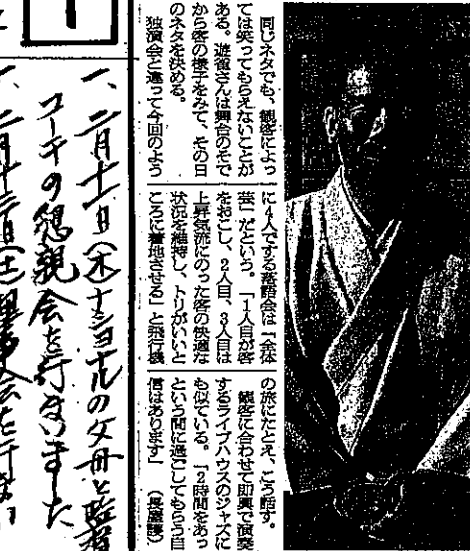 同じネタでも、観客によっ
ては笑ってもらえないことが
ある。遊雀さんは舞台のそで
から客の様子をみて、その日
のネタを決める。
独演会と違って今回のよう
に4人でする落語会は「全体
芸」だという。「1人目が客
をおこし、2人目、3人目は
上昇気流にのった客の快適な
状況を維持し、トリがいいと
ころに着地させる」と飛行機
の旅にたとえ、こう話す。
観客に合わせて即興で演奏
するライブハウスのジャズに
も似ている。「2時間をあっ
という間に過ごしてもらう自
信はあります」
1
一、二月十一日(木)ナショナルの父母と監督
コーチの懇親会を行いました
一、二月十三日(土)理事会を行ない